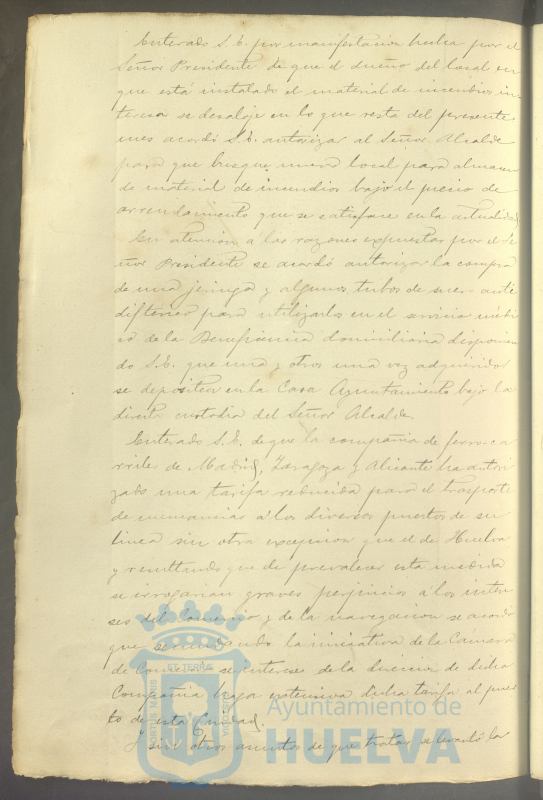 Enterado S.E. por manifestacion hecha por el
Señor Presidente de que el dueño del local en
que está instalado el material de incendios in-
teresa se desaloje en lo que resta del presente
mes acordó S.E. autorizar al Señor Alcalde
para que busque nuevo local para almacen
de material de incendios bajo el precio de
arrendamiento que se satisface en la actualidad.
En atencion a las razones expuestas por el Se-
ñor Presidente se acordó autorizar la compra
de una jeringa y algunos tubos de suero anti
difterico para utilizarlos en el servicio médi-
co de la Beneficencia domiciliaria disponien-
do S.E. que una y otros una vez adquiridos
se depositen en la Casa Ayuntamiento bajo la
directa custodia del Señor Alcalde.
Enterado S.E. de que la compañia de ferro-ca-
rriles de Madrid, Zaragoza y Alicante ha autori-
zado una tarifa reducida para el trasporte
de mercancias a los diversos puertos de su
linea sin otra excepcion que el de Huelva
y resultando que de prevalecer esta medida
se irrogarian graves perjuicios a los intere-
ses del Comercio y de la navegacion se acordó
que secundando la iniciativa de la Camara
de Comercio se interese de la direccion de dicha
Compañia haga extensiva dicha tarifa al puer-
to de esta Ciudad.
Y sin otros asuntos de que tratar se levantó la
PORTUS MARIS
ET TERRÆ
Ayuntamiento de
HUELVA